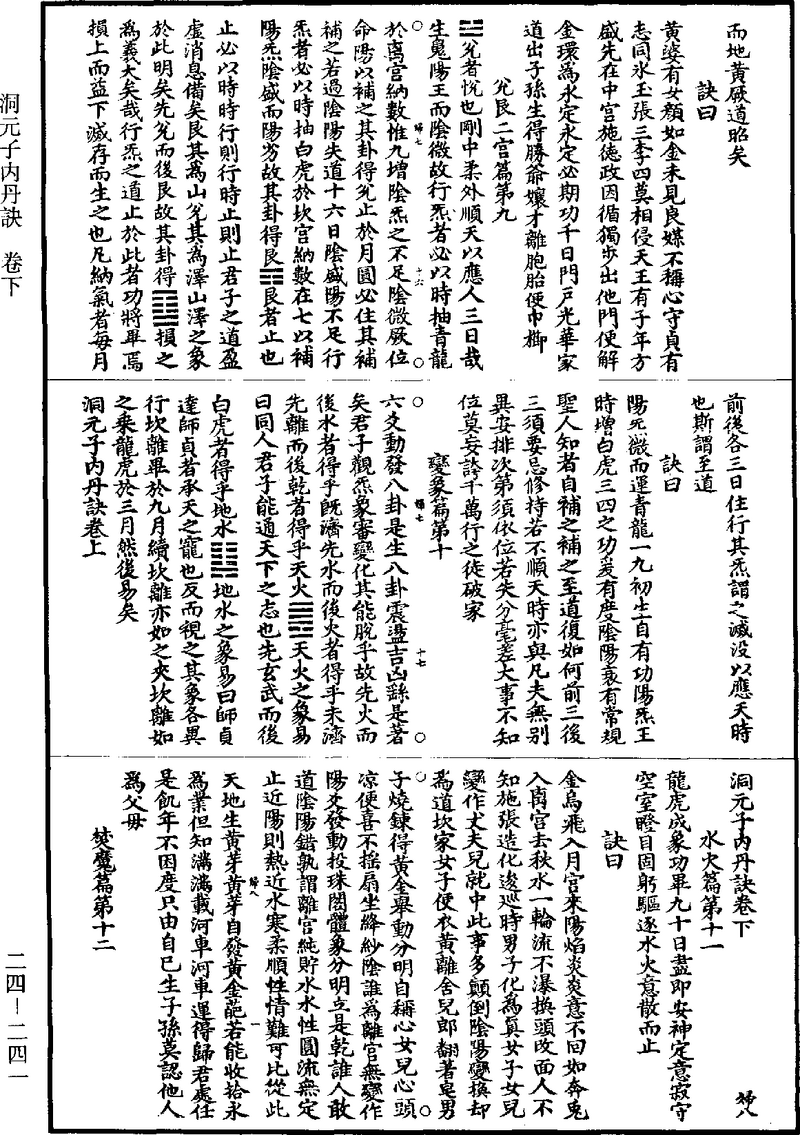 而地黃厥道昭矣
訣曰
黃婆有女顏如金未見良媒不稱心守貞有
志同氷玉張三李四莫相侵天王有子年方
盛先在中宮施德政因循獨步出他門便解
金環為永定永定必期功千日門戶光華家
道出子孫生得勝爺孃才離胞胎便巾櫛
兌艮二宮篇第九
☱兌者悅也剛中柔外順天以應人三日哉
生䰟陽王而陰微故行炁者必以時抽青龍
於离宮納數惟九增陰炁之不足陰微厥位
命陽以補之其卦得兌止於月圓必住其補
補之若過陰陽失道十六日陰盛陽不足行
炁者必以時抽白虎於坎宮納數在七以補
陽炁陰盛而陽劣故其卦得艮☶艮者止也
止必以時時行則行時止則止君子之道盈
虛消息備矣艮其為山兌其為澤山澤之象
於此明矣先兌而後艮故其卦得䷨損之
為義大矣哉行炁之道止於此者功將畢焉
損上而益下滅存而生之也凡納氣者每月
前後各三日住行其炁謂之滅没以應天時
也斯謂至道
訣曰
陽炁微而運青龍一九初生自有功陽炁王
時增白虎三四之功爰有度陰陽衰有常規
聖人知者自補之補之至道復如何前三後
三須要忌修持若不順天時亦與凡夫無別
異安排次第須依位若失分毫差大事不知
位莫妄誇千萬行之徒破家
變象篇第十
六爻動發八卦是生八卦震盪吉凶繇是著
矣君子觀炁象審變化其能脫乎故先火而
後水者得乎旣濟先水而後火者得乎未濟
先離而後乾者得乎天火䷌天火之象易
曰同人君子能通天下之志也先玄武而後
白虎者得乎地水䷆地水之象易曰師貞
達師貞者承天之寵也反而視之其象各異
行坎離畢於九月續坎離亦如之夾坎離如
之乘龍虎於三月然後易矣
洞元子内丹訣卷上
洞元子内丹訣卷下
水火篇第十一
龍虎成象功畢九十日盡即安神定意寂守
空室瞪目固躬驅逐水火意散而止
訣曰
金烏飛入月宮來陽焰炎炎意不回如奔兎
入离宮去秋水一輪流不瀑換頭改面人不
知施張造化逡巡時男子化為眞女子女兒
變作丈夫兒就中此事多顛倒陰陽變換却
為道坎家女子便衣黃離舍兒郎翻著皂男
子燒鍊得黃金舉動分明自稱心女兒心頭
凉便喜不摇扇坐絳紗陰誰為離官無變作
陽爻發動投珠閤體象分明立是乾誰人敢
道陰陽錯孰謂離宮純貯水水性圓流無定
止近陽則熱近水寒柔順性情難可比從此
天地生黃芽黃芽自發黃金葩若能收拾永
為業但知滿滿載河車河車運得歸君處任
是飢年不困度只由自已生子孫莫認他人
為父母
焚魔篇第十二
洞元子内丹訣　卷下
二四—二四一
婦七
十六
婦七
十七
婦八
一
婦八